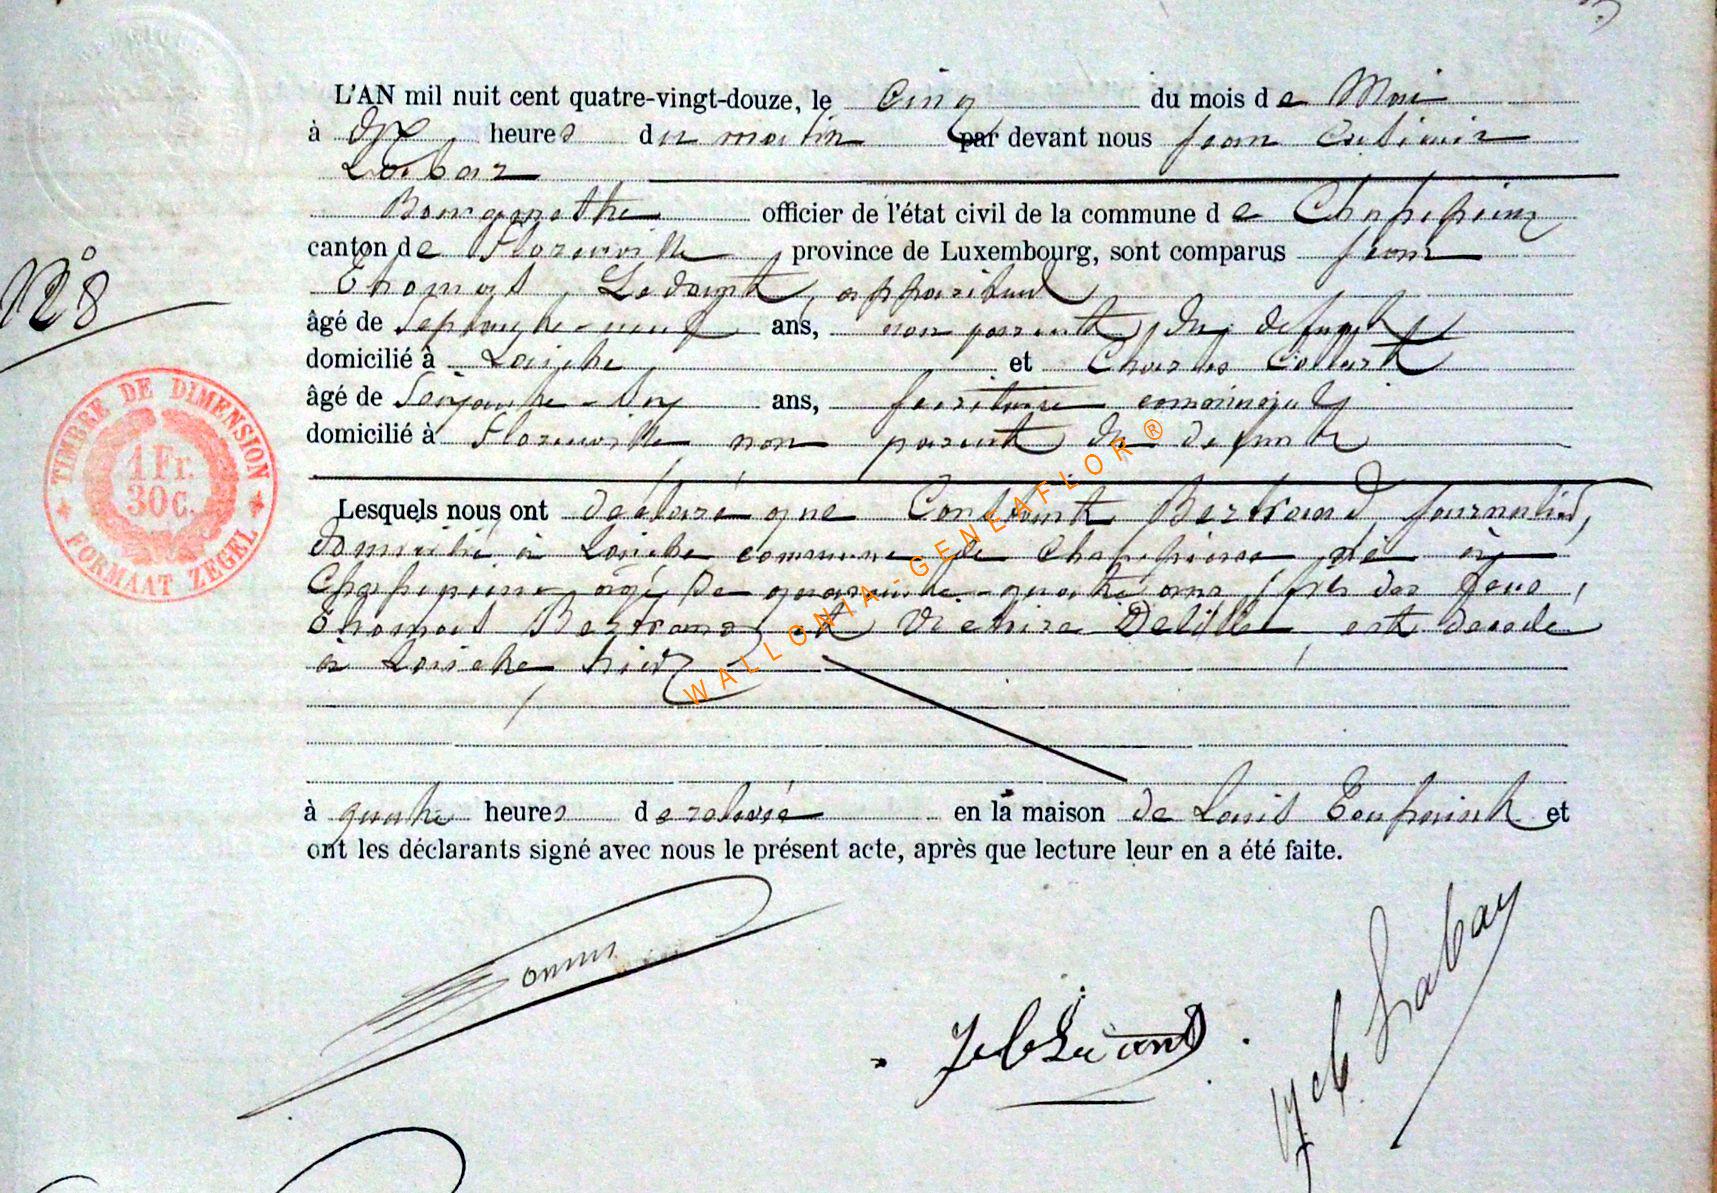 L'AN mil huit cent quatre-vingt-douze, le cinq du mois de Mai
à dix heures du matin par devant nous Jean Casimir
Labaz
Bourgmestre officier de l'état civil de la commune de Chassepierre
canton de Florenville province de Luxembourg, sont comparus Jean
Thomas Ledant, appariteur
âgé de ans, non parent du défunt,
domicilié à Laiche et Charles Collart
âgé de Soixante-six ans, secrétaire communal
domicilié à Florenville non parent du défunt
N° 28
TIMBRE DE DIMENSION
1 Fr.
30 C.
FORMAAT ZEGEL
Lesquels nous ont déclaré que Constant Bertrand, journalier,
domicilié à Laiche commune de Chassepierre né à
Chassepierre âgé de quarante-quatre ans, fils des feus,
Thomas Bertrand et Victoire Delille est décédé
à Laiche hier
à quatre heures de relevée en la maison de Louis Toupoint et
ont les déclarants signé avec nous le présent acte, après que lecture leur en a été faite.
WALLONIA-GENEAFLOR ®